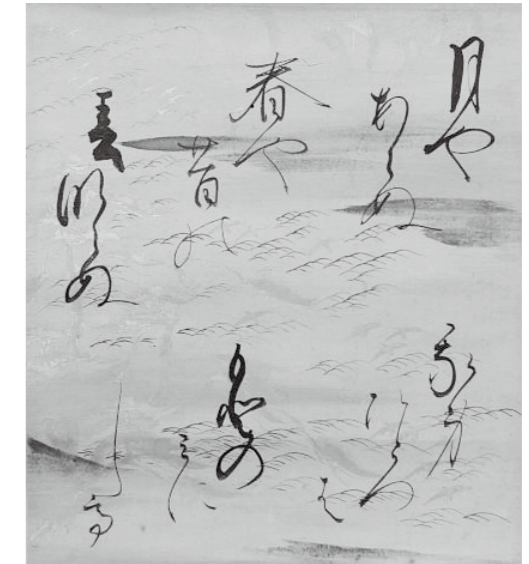 月や
あらぬ
春や
昔の
春ならぬ
我身
ひとつ
は
もとの
みに
して